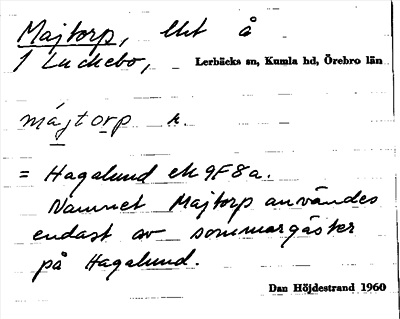 Majtorp, lht å
1 Luckebo, Lerbäcks sn, Kumla hd, Örebro län
májtorp n.
= Hagalund ek 9F8a.
Namnet Majtorp användes
endast av sommargäster
på Hagalund.
Dan Höjdestrand 1960